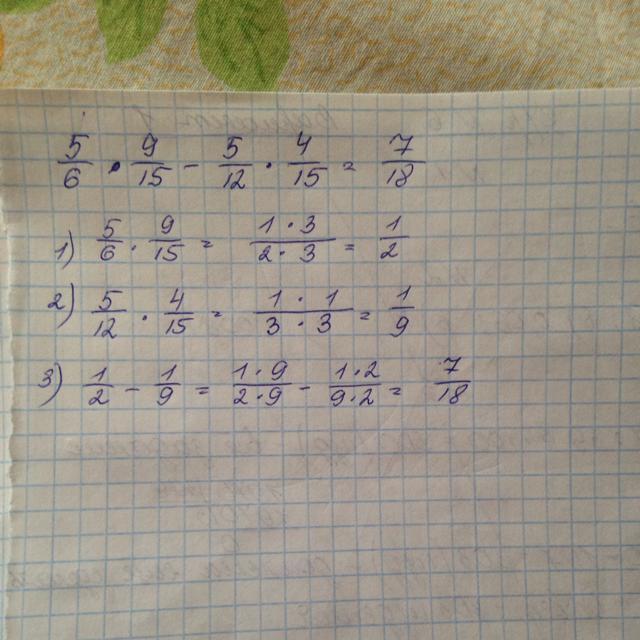 5/6 · 9/15 - 5/12 · 4/15 = 7/18
1) 5/6 · 9/15 = 1·3/2·3 = 1/2
2) 5/12 · 4/15 = 1·1/3·3 = 1/9
3) 1/2 - 1/9 = 1·9/2·9 - 1·2/9·2 = 7/18